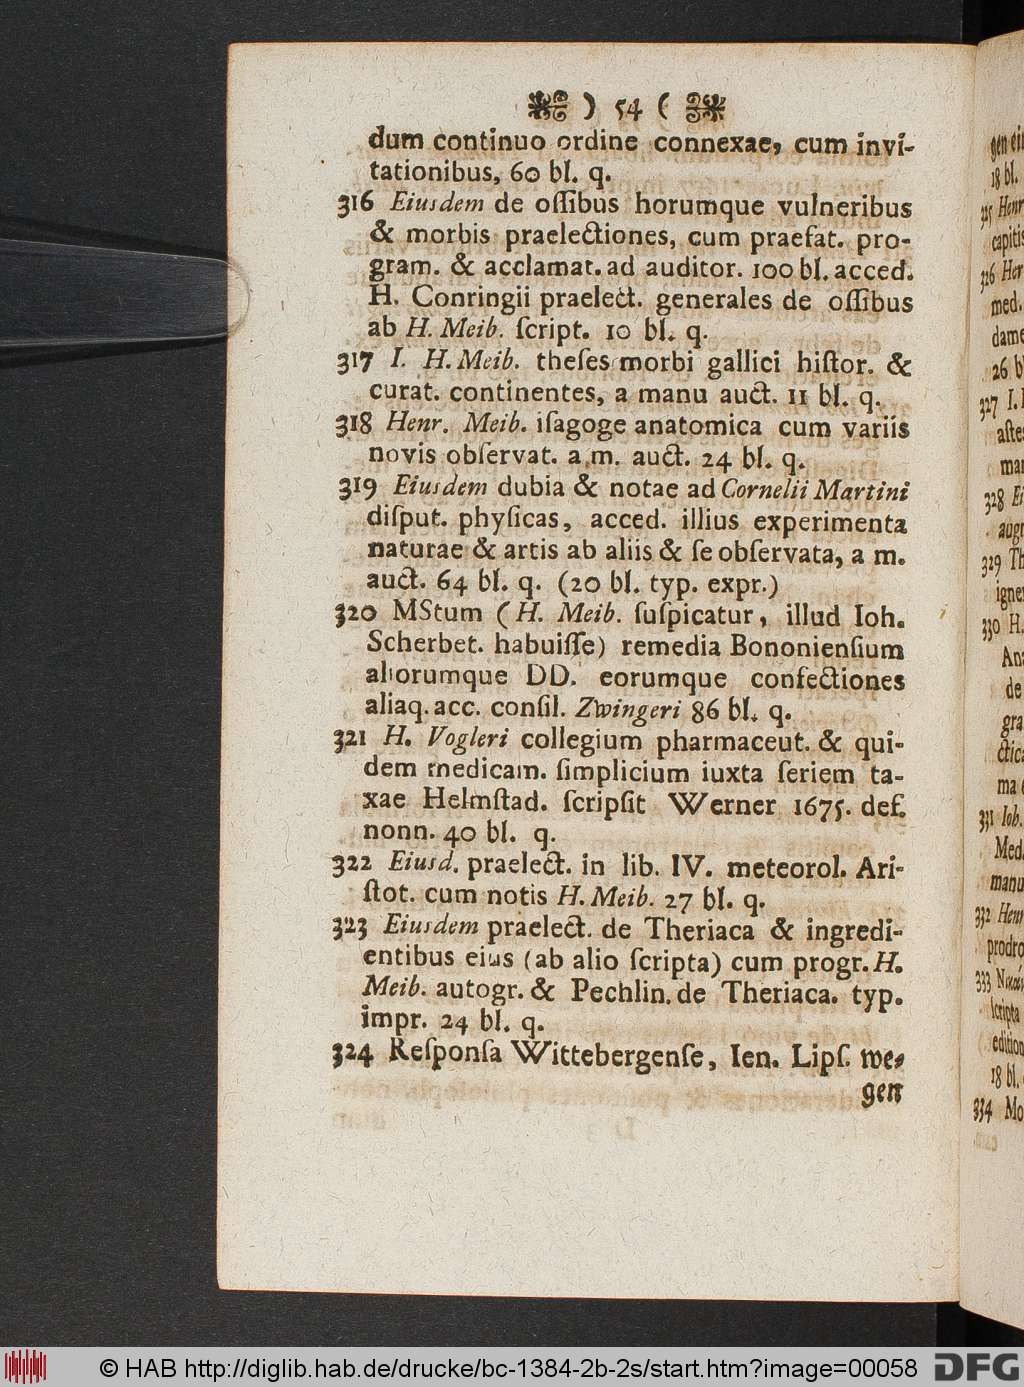 ) 54 (
dum continuo ordine connexae, cum invi-
tationibus, 60 bl. q.
316 Eiusdem de oſſibus horumque vulneribus
& morbis praelectiones, cum praefat. pro-
gram. & acclamat. ad auditor. 100 bl. acced.
H. Conringii praelect. generales de oſſibus
ab H. Meib. ſcript. 10 bl. q.
317 I. H. Meib. theſes morbi gallici hiſtor. &
curat. continentes, a manu auct. 11 bl. q.
318 Henr. Meib. iſagoge anatomica cum variis
novis obſervat. a m. auct. 24 bl. q.
319 Eiusdem dubia & notae ad Cornelii Martini
diſput. phyſicas, acced. illius experimenta
naturae & artis ab aliis & ſe obſervata, a m.
auct. 64 bl. q. (20 bl. typ. expr.)
320 MStum (H. Meib. ſuſpicatur, illud Ioh.
Scherbet. habuiſſe) remedia Bononienſium
aliorumque DD. eorumque confectiones
aliaq. acc. conſil. Zwingeri 86 bl. q.
321 H. Vogleri collegium pharmaceut. & qui-
dem medicam. ſimplicium iuxta ſeriem ta-
xae Helmſtad. ſcripſit Werner 1675. deſ.
nonn. 40 bl. q.
322 Eiusd. praelect. in lib. IV. meteorol. Ari-
ſtot. cum notis H. Meib. 27 bl. q.
323 Eiusdem praelect. de Theriaca & ingredi-
entibus eius (ab alio ſcripta) cum progr. H.
Meib. autogr. & Pechlin. de Theriaca. typ.
impr. 24 bl. q.
324 Reſponſa Wittebergenſe, Ien. Lipſ. we-
gen
gen ei
18 bl.
325 Henr
capitis
326 Her
med.
dame
26 b
327 I.
aſte
man
328 Ei
augr
329 Th
igne
330 H.
Ana
de
gra
ctica
ma
331 Ioh.
Med.
manu
332 Henr
prodro
333
ſcripta
edition
18 bl.
334 Mo
© HAB http://diglib.hab.de/drucke/bc-1384-2b-2s/start.htm?image=00058
DFG